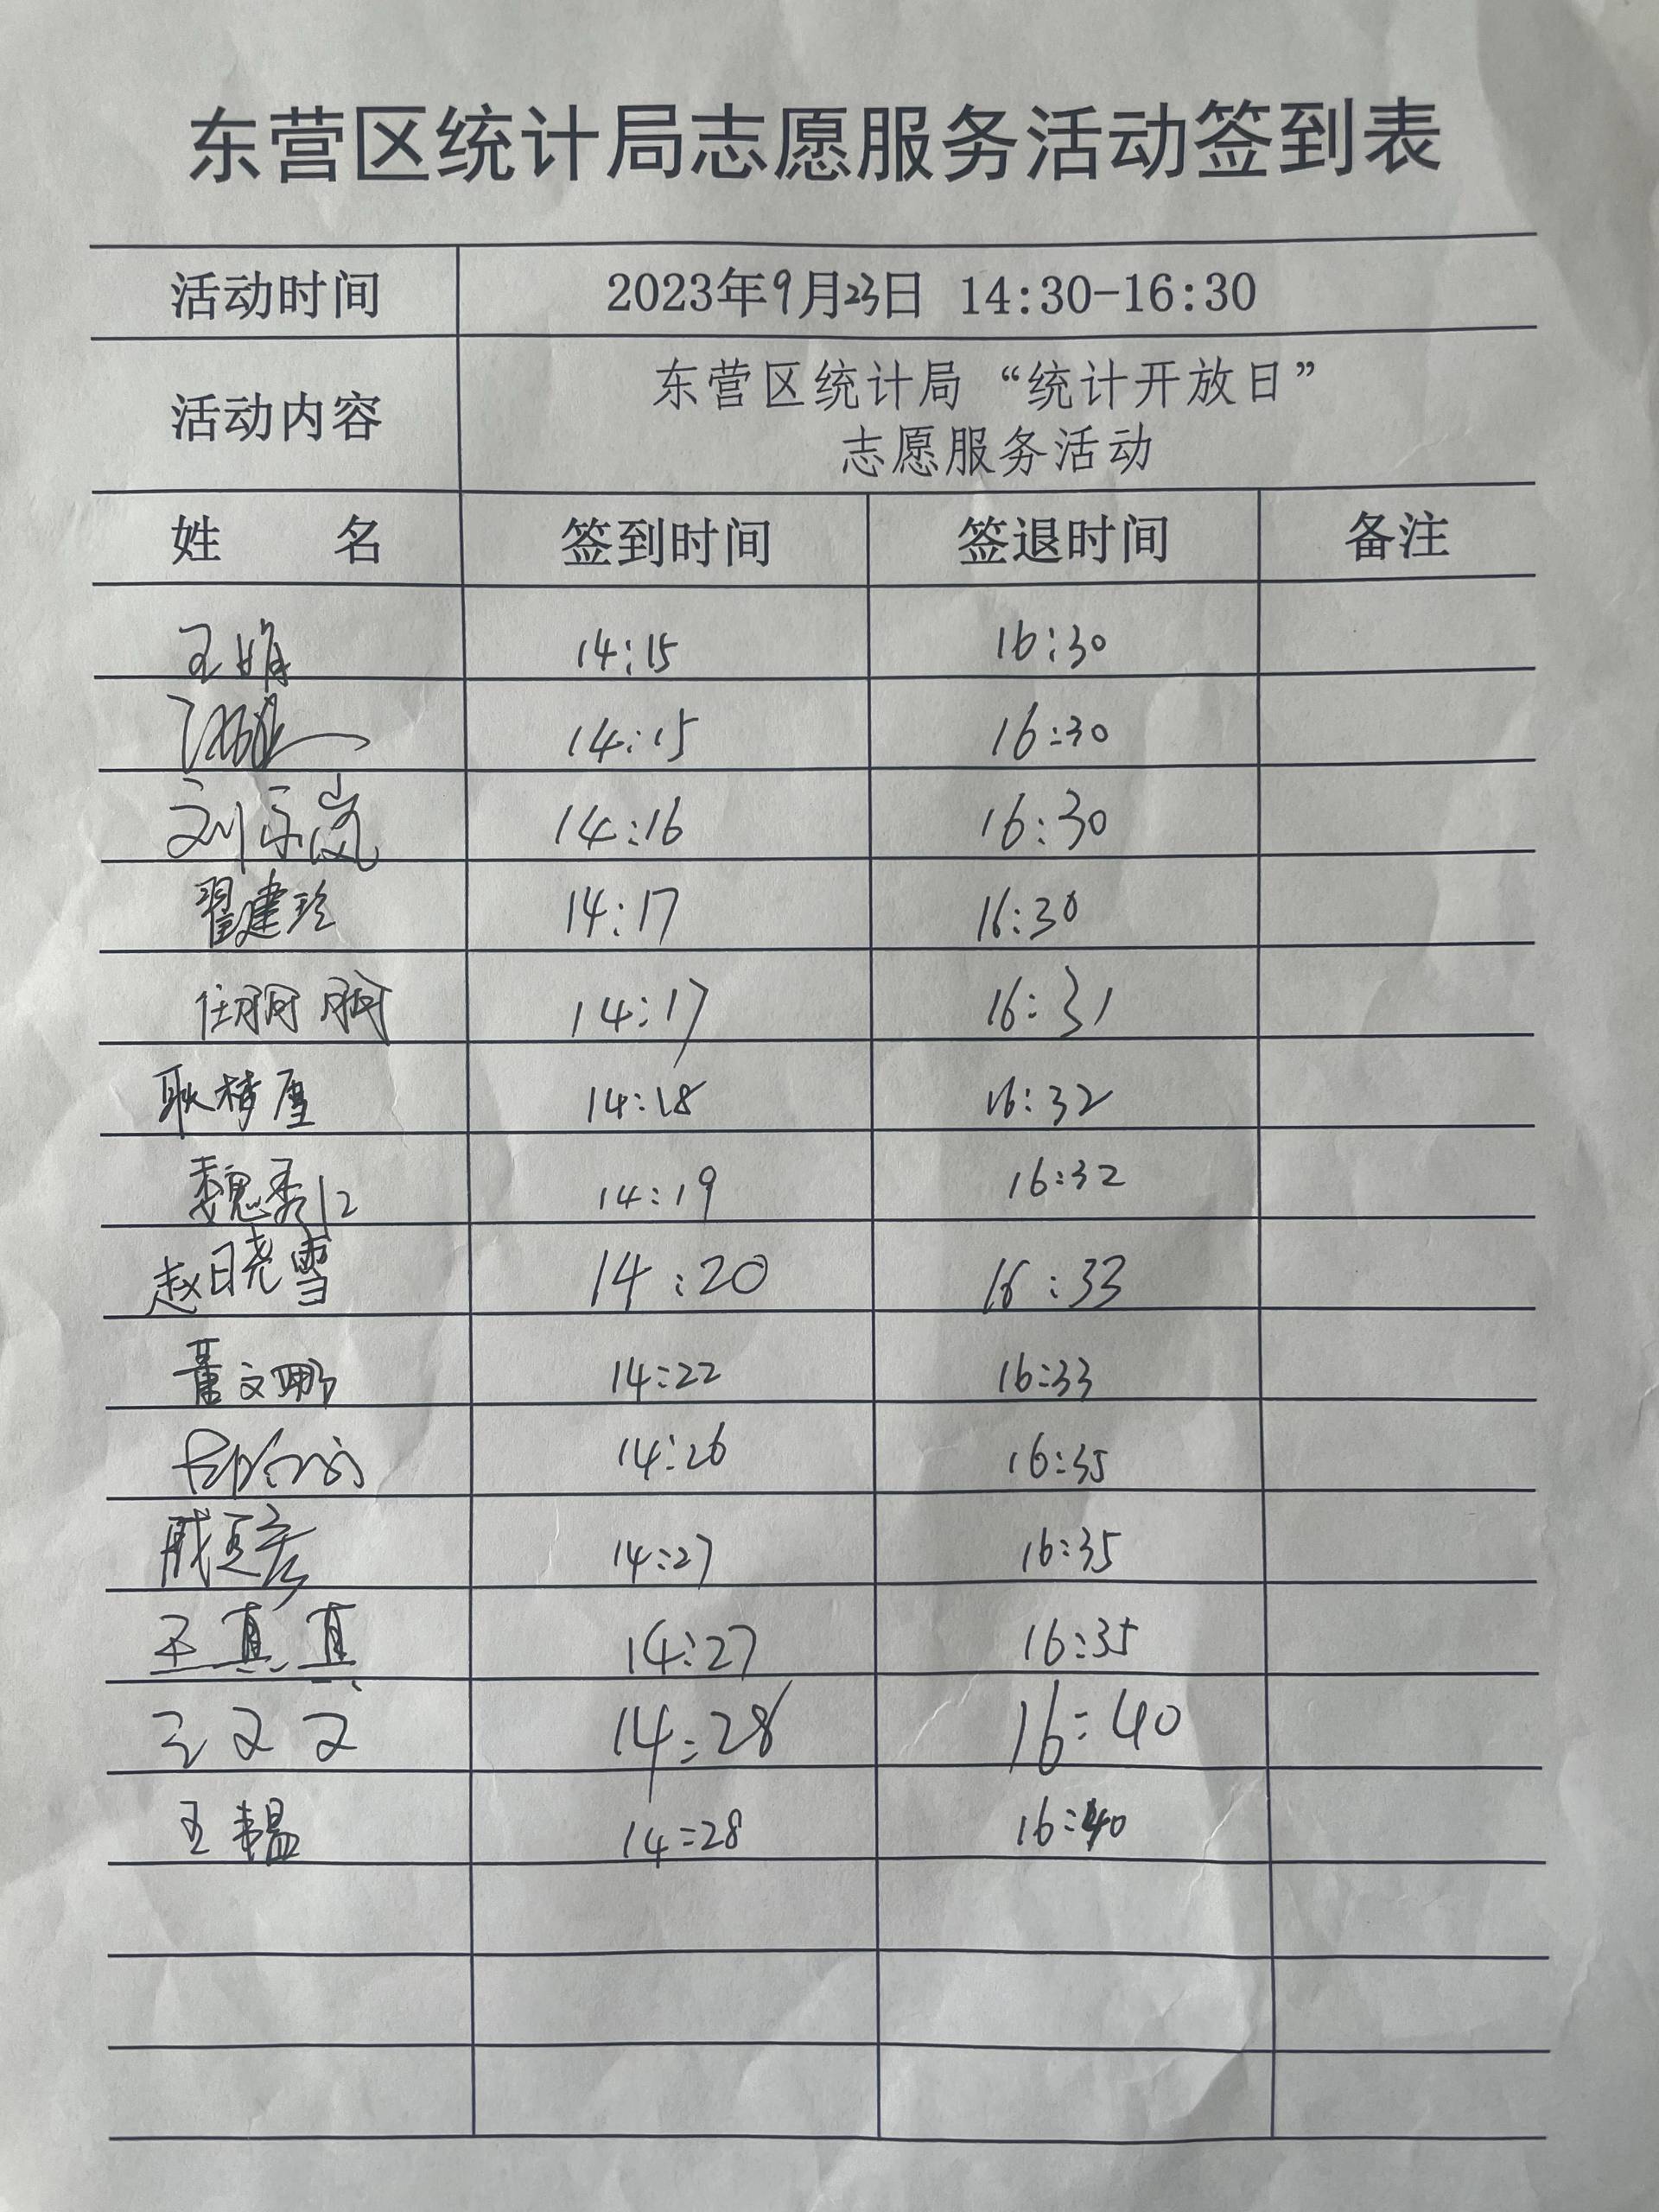 东营区统计局志愿服务活动签到表
活动时间 2023年9月23日 14:30-16:30
活动内容 东营区统计局“统计开放日”
志愿服务活动
姓 名 签到时间 签退时间 备注
王娟 14:15 16:30
14:15 16:30
刘 14:16 16:30
翟建玲 14:17 16:30
任丽丽 14:17 16:31
耿梦雪 14:18 16:32
魏秀江 14:19 16:32
赵晓雪 14:20 16:33
董文娜 14:22 16:33
14:26 16:35
14:27 16:35
王真真 14:27 16:35
王文文 14:28 16:40
王韫 14:28 16:40